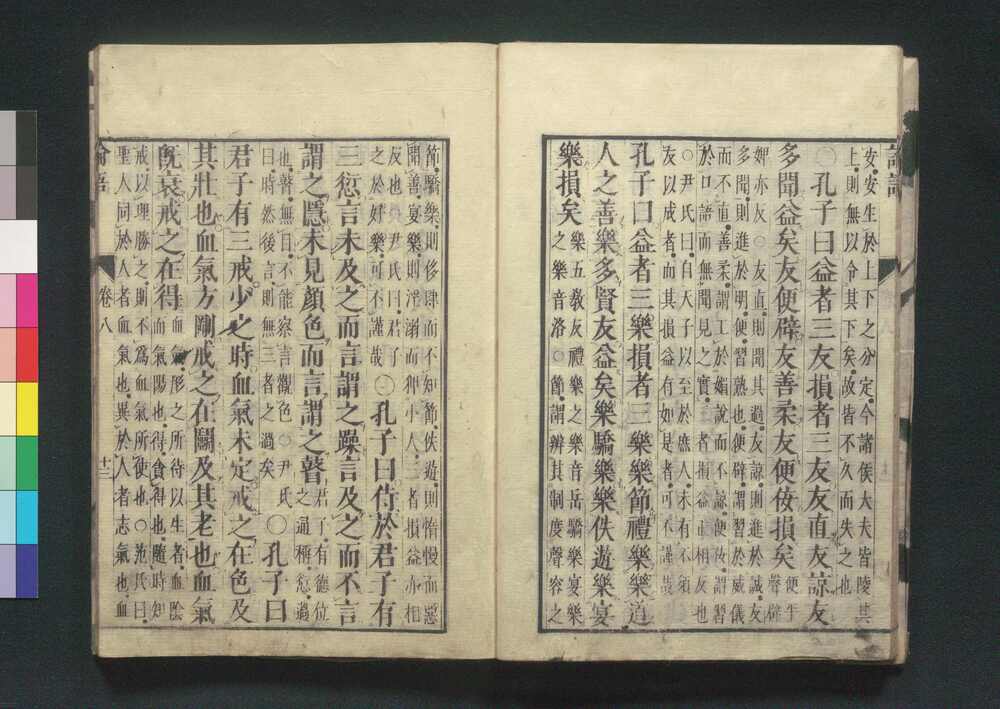 論語
安。安生於上下之分定。今諸侯大夫皆陵其
上。則無以令其下矣。故皆不久而失之也
○孔子曰益者三友損者三友友直友諒友
多聞益矣友便辟友善柔友便佞損矣便平聲辟
婢亦反○友直。則聞其過。友諒。則進於誠。友
多聞。則進於明。便。習熟也。便辟。謂習於威儀
而不直。善柔。謂工於媚說而不諒。便佞。謂習
於口語而無聞見之實。三者損益正相反也
○尹氏曰。自天子以至於庶人。未有不須
友以成者。而其損益有如是者。可不謹哉
孔子曰益者三樂損者三樂樂節禮樂樂道
人之善樂多賢友益矣樂驕樂樂佚遊樂宴
樂損矣樂五教反禮樂之樂音岳驕樂宴樂
之樂音洛○節。謂辨其制度聲容之
節。驕樂。則侈肆而不知節。佚遊。則惰慢而惡
聞善。宴樂。則淫溺而狎小人。三者損益亦相
反也○尹氏曰。君子
之於好樂。可不謹哉
○孔子曰侍於君子有
三愆言未及之而言謂之躁言及之而不言
謂之隱未見顏色而言謂之瞽君子。有德位
之通稱。愆。過
也。瞽。無目。不能察言觀色○尹氏
曰。時然後言。則無三者之過矣
○孔子曰
君子有三戒少之時血氣未定戒之在色及
其壯也血氣方剛戒之在鬬及其老也血氣
既衰戒之在得血氣。形之所待以生者。血陰
而氣陽也。得。貪得也。隨時知
戒。以理勝之。則不爲血氣所使也。○范氏曰。
聖人同於人者。血氣也。異於人者。志氣也。血
論語
卷八
十二